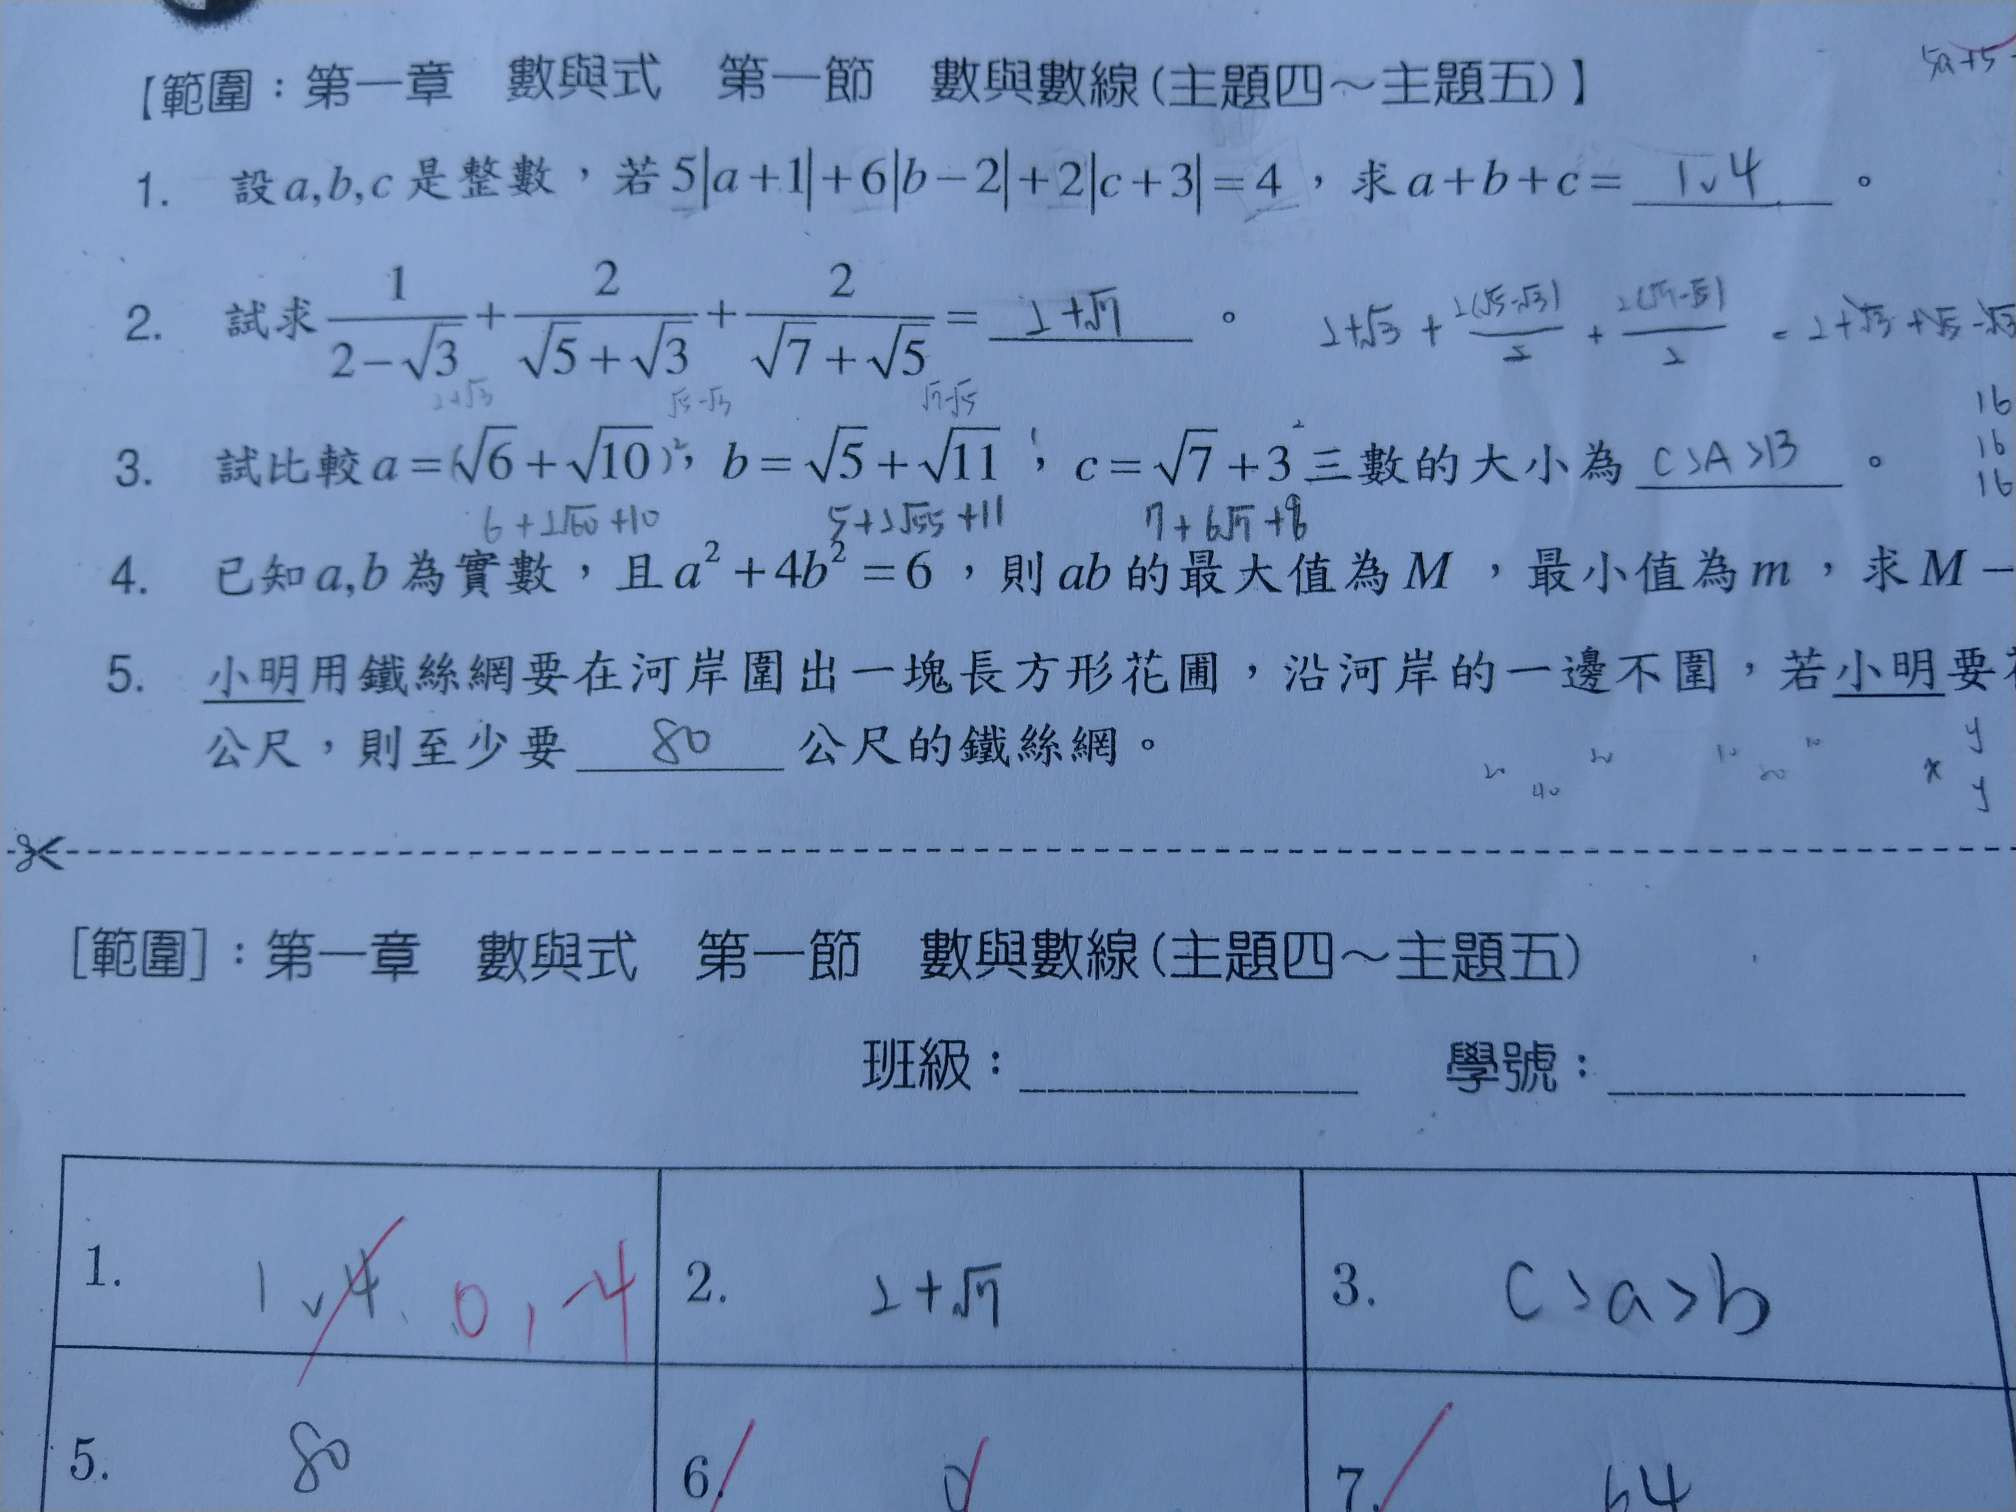 【範圍：第一章　數與式　第一節　數與數線(主題四～主題五)】
5a+5
1. 設a,b,c是整數，若5|a+1|+6|b-2|+2|c+3|=4，求a+b+c= 1、4 。
2. 試求 1/(2-√3) + 2/(√5+√3) + 2/(√7+√5) = 2+√7 。 2+√3 + 2(√5-√3)/2 + 2(√7-√5)/2 = 2+√3+√5-√3
2+√3 √5-√3 √7-√5
3. 試比較a=(√6+√10)²，b=√5+√11，c=√7+3三數的大小為 C>A>B 。
16
16
16
6+2√60+10 5+2√55+11 7+6√7+9
4. 已知a,b為實數，且a²+4b²=6，則ab的最大值為M，最小值為m，求M-
5. 小明用鐵絲網要在河岸圍出一塊長方形花圃，沿河岸的一邊不圍，若小明要
公尺，則至少要 80 公尺的鐵絲網。
20 40 20 10 20 10 x y y
[範圍]：第一章　數與式　第一節　數與數線(主題四～主題五)
班級： 學號：
1. 1、4 0,-4
2. 2+√7
3. c>a>b
5. 80
6. 0
7. 64